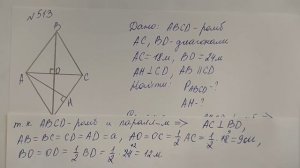 №513
B
Дано: ABCD - ромб
AC, BD - диагонали
AC = 18м, BD = 24м
A
O
C
AH ⊥ CD, AB ∥ CD
Найти: P_ABCD - ?
H
AH - ?
D
т.к ABCD - ромб и паралл-м ⇒ AC ⊥ BD,
AB = BC = CD = AD = a, AO = OC = 1/2 AC = 1/2 · 18 = 9см,
BO = OD = 1/2 BD = 1/2 24 = 12 м.